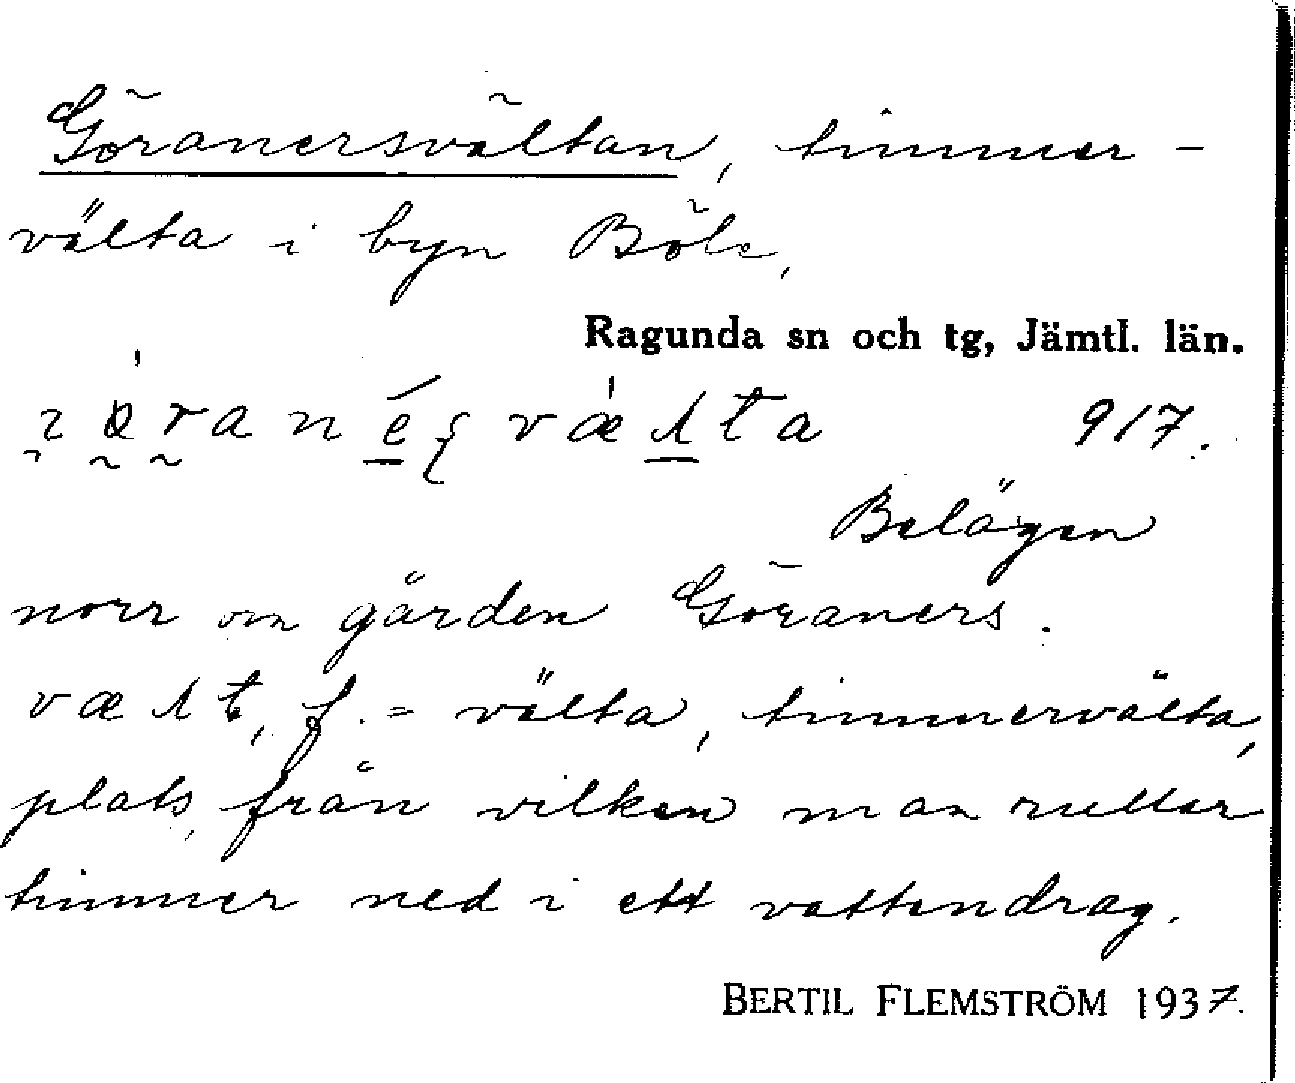 Göranersvältan, timmer-
välta i byn Böle,
Ragunda sn och tg, Jämtl. län.
917.
Belägen
norr om gården Göraners.
f. = välta, timmervälta,
plats, från vilken man rullar
timmer ned i ett vattendrag.
BERTIL FLEMSTRÖM 1937.